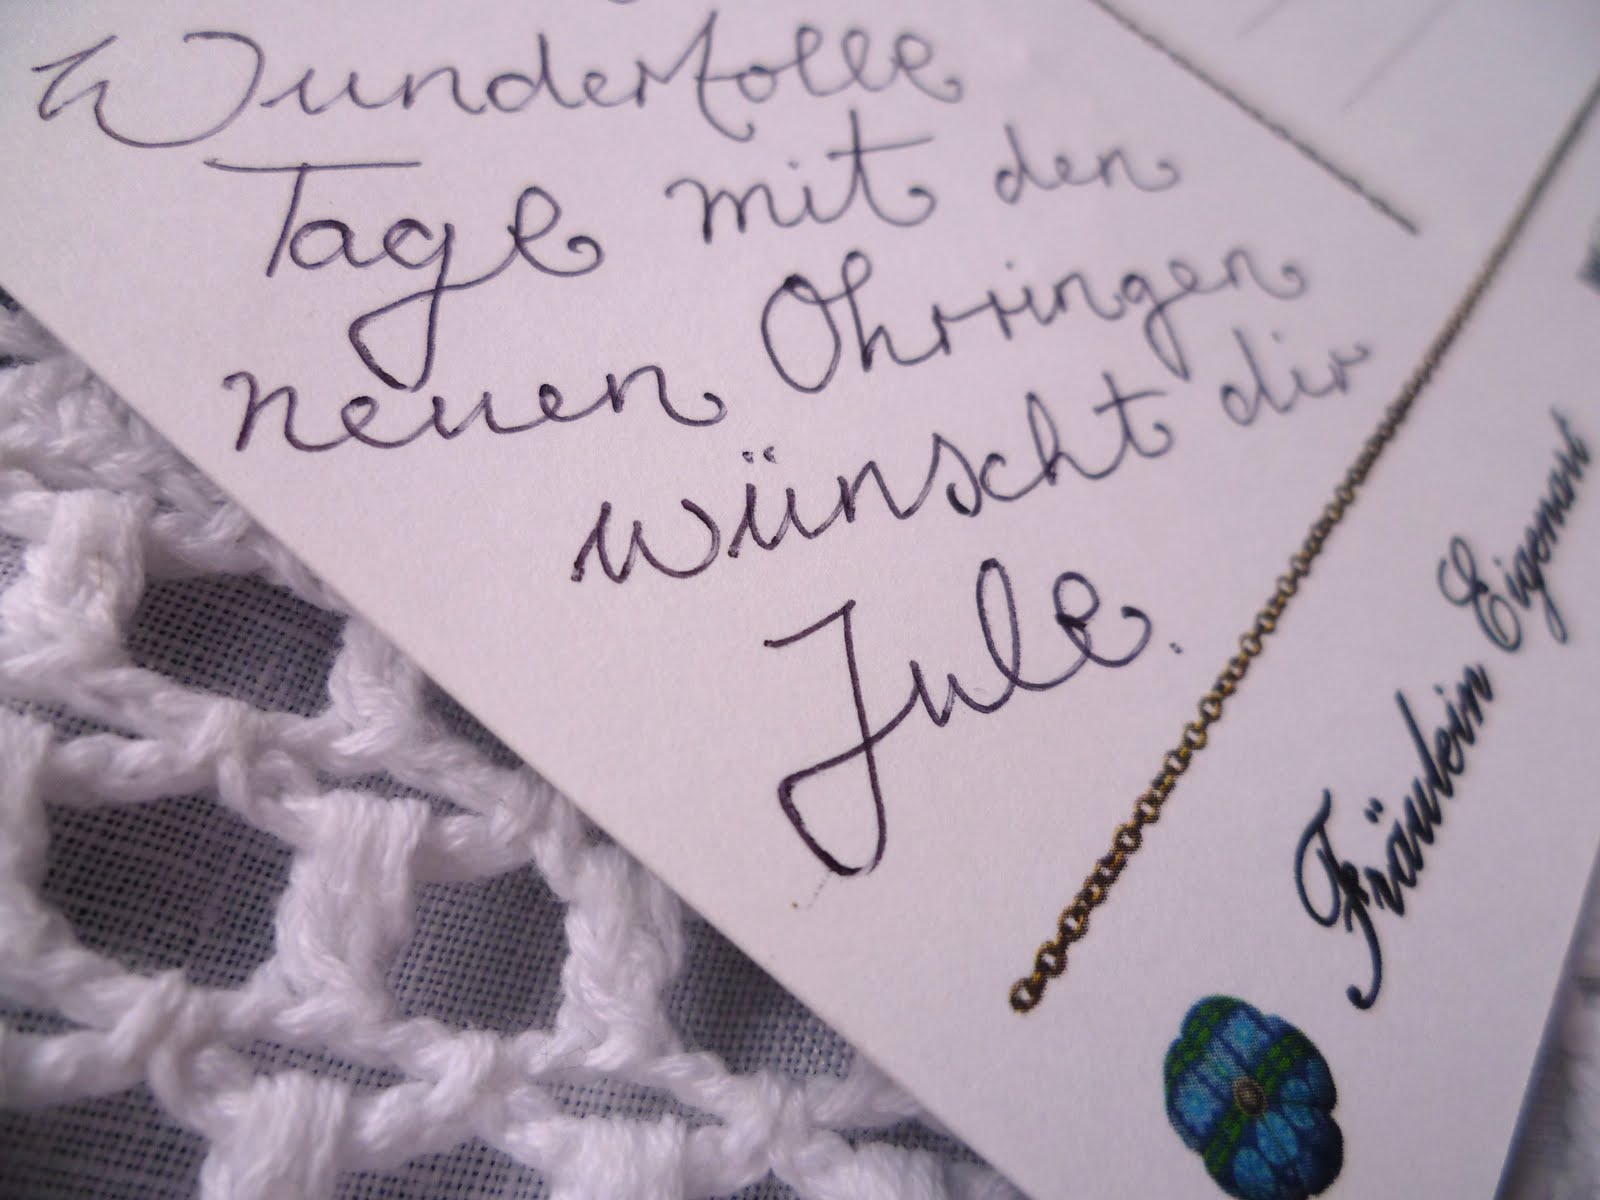 Wundertolle
Tage mit den
neuen Ohrringen
wünscht dir
Jule.
Fräulein Eigenart